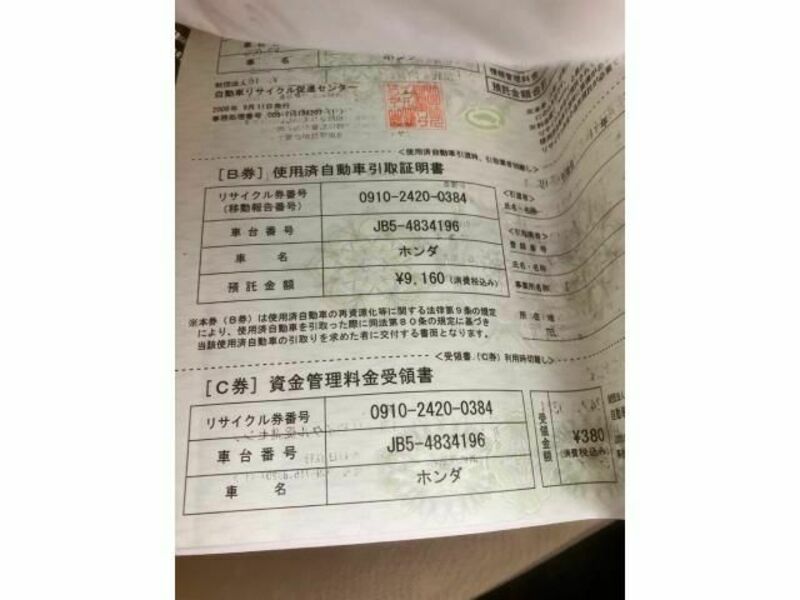 車　名
財団法人
自動車リサイクル促進センター
情報管理料金
預託金額合計
<使用済自動車引渡時、引取業者切離し>
［B券］使用済自動車引取証明書
リサイクル券番号
(移動報告番号)
0910-2420-0384
車台番号
JB5-4834196
車　名
ホンダ
預託金額
¥9,160(消費税込み)
<引渡者>
氏名・名称
<引取業者>
登録番号
氏名・名称
事業所名称
所在地
※本券（B券）は使用済自動車の再資源化等に関する法律第9条の規定
により、使用済自動車を引取った際に同法第80条の規定に基づき
当該使用済自動車の引取りを求めた者に交付する書面となります。
<受領書(C券)利用時切離し>
［C券］資金管理料金受領書
リサイクル券番号
0910-2420-0384
車台番号
JB5-4834196
車　名
ホンダ
受領金額
¥380
(消費税込み)